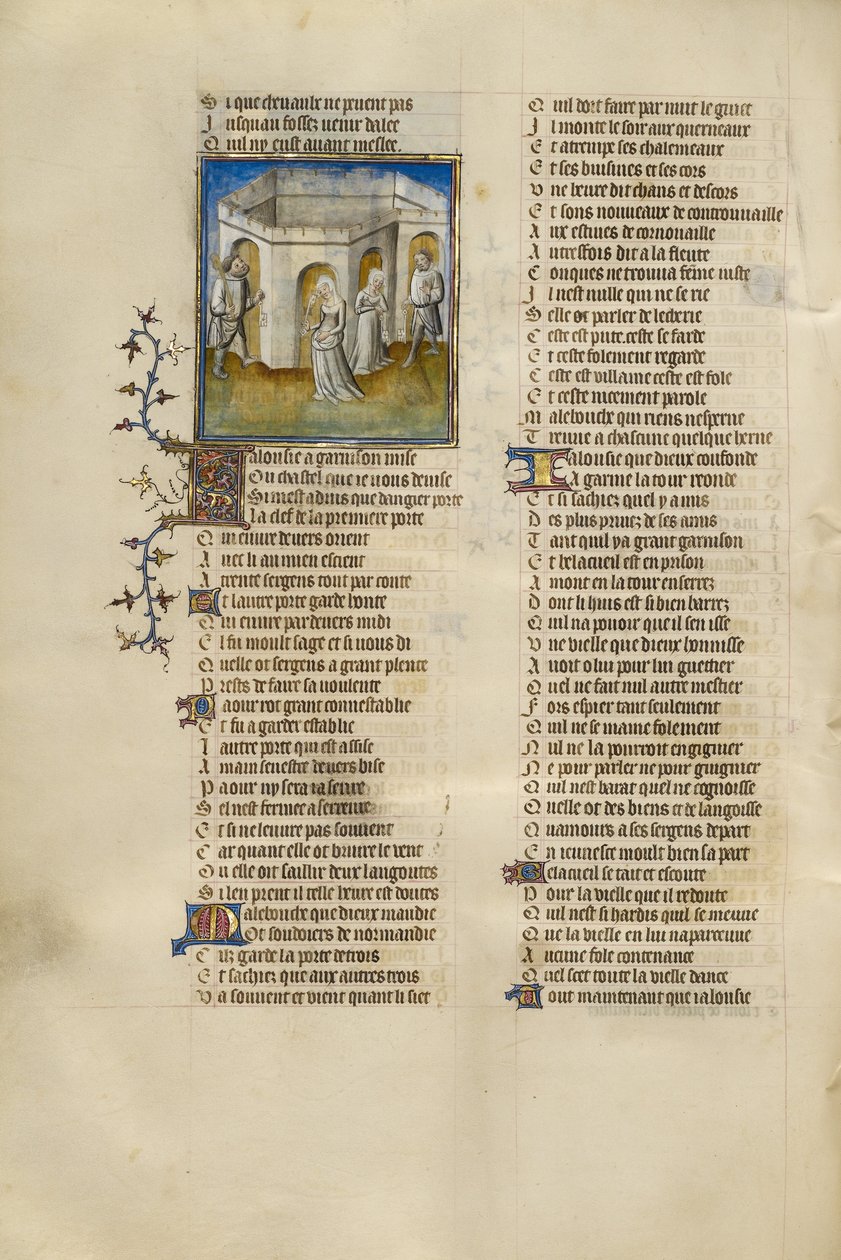 Si que chevaulx ne peuent pas
Jusquau fossez venir dalee
Quil ny eust avant meslee.
Jalousie a garnison mise
Ou chastel que ie vous devise
Si mest advis que dangier porte
La clef de la premiere porte
Qui euvre devers orient
Avec li au mien escient
A trente sergens tout par conte
Et lautre porte garde honte
Qui euvre par devers midi
El fu moult sage et si vous di
Quelle ot sergens a grant plente
Prests de faire sa voulente
Paour rot grant connestablie
Et fu a garder establie
Lautre porte qui est assise
A main senestre devers bise
Paour ny sera ia seure
Sel nest fermee a serreure
Et si ne leuvre pas souvent
Car quant elle ot bruire le vent
Ou elle oit saillir deux langoutes
Si len prent il telle heure est doutes
Malebouche que dieux maudie
Ot soudoiers de normandie
Cilz garde la porte detrois
Et sachiez que aux autres trois
Va souvent et vient quant li siet
Quil doit faire par nuit le guiet
Jl monte le soir aux querneaux
Et atrempe ses chalemeaux
Et ses buisines et ses cors
Une heure dit chans et descors
Et sons nouveaux de controuvaille
Aux estives de cornouaille
Autresfois dit a la fleute
Conques ne trouva feme iuste
Jl nest nulle qui ne se rie
Selle ot parler de lecherie
Ceste est pute. ceste se farde
Et ceste folement regarde
Ceste est villaine ceste est fole
Et ceste nicement parole
Malebouche qui riens nesperne
Treuve a chascune quelque herne
Jalousie que dieux confonde
A garnie la tour reonde
Et si sachiez quel y a mis
Des plus privez de ses amis
Tant quil ya grant garnison
Et belacueil est en prison
Amont en la tour enserrez
Dont li huis est si bien barrez
Quil na povoir que il sen isse
Une vielle que dieux honnisse
Avoit o lui pour lui guettier
Quel ne fait nul autre mestier
Fors espier tant seulement
Quil ne se maine folement
Nul ne la pourroit engignier
Ne pour parler ne pour guignier
Quil nest barat quel ne cognoisse
Quelle ot des biens et de langoisse
Quamours a ses sergens depart
En ieunesce moult bien sa part
Belacueil se tait et escoute
Pour la vielle que il redoute
Quil nest si hardis quil se meuve
Que la vielle en lui naparceuve
Aucune fole contenance
Quel scet toute la vielle dance
Tout maintenant que ialousie